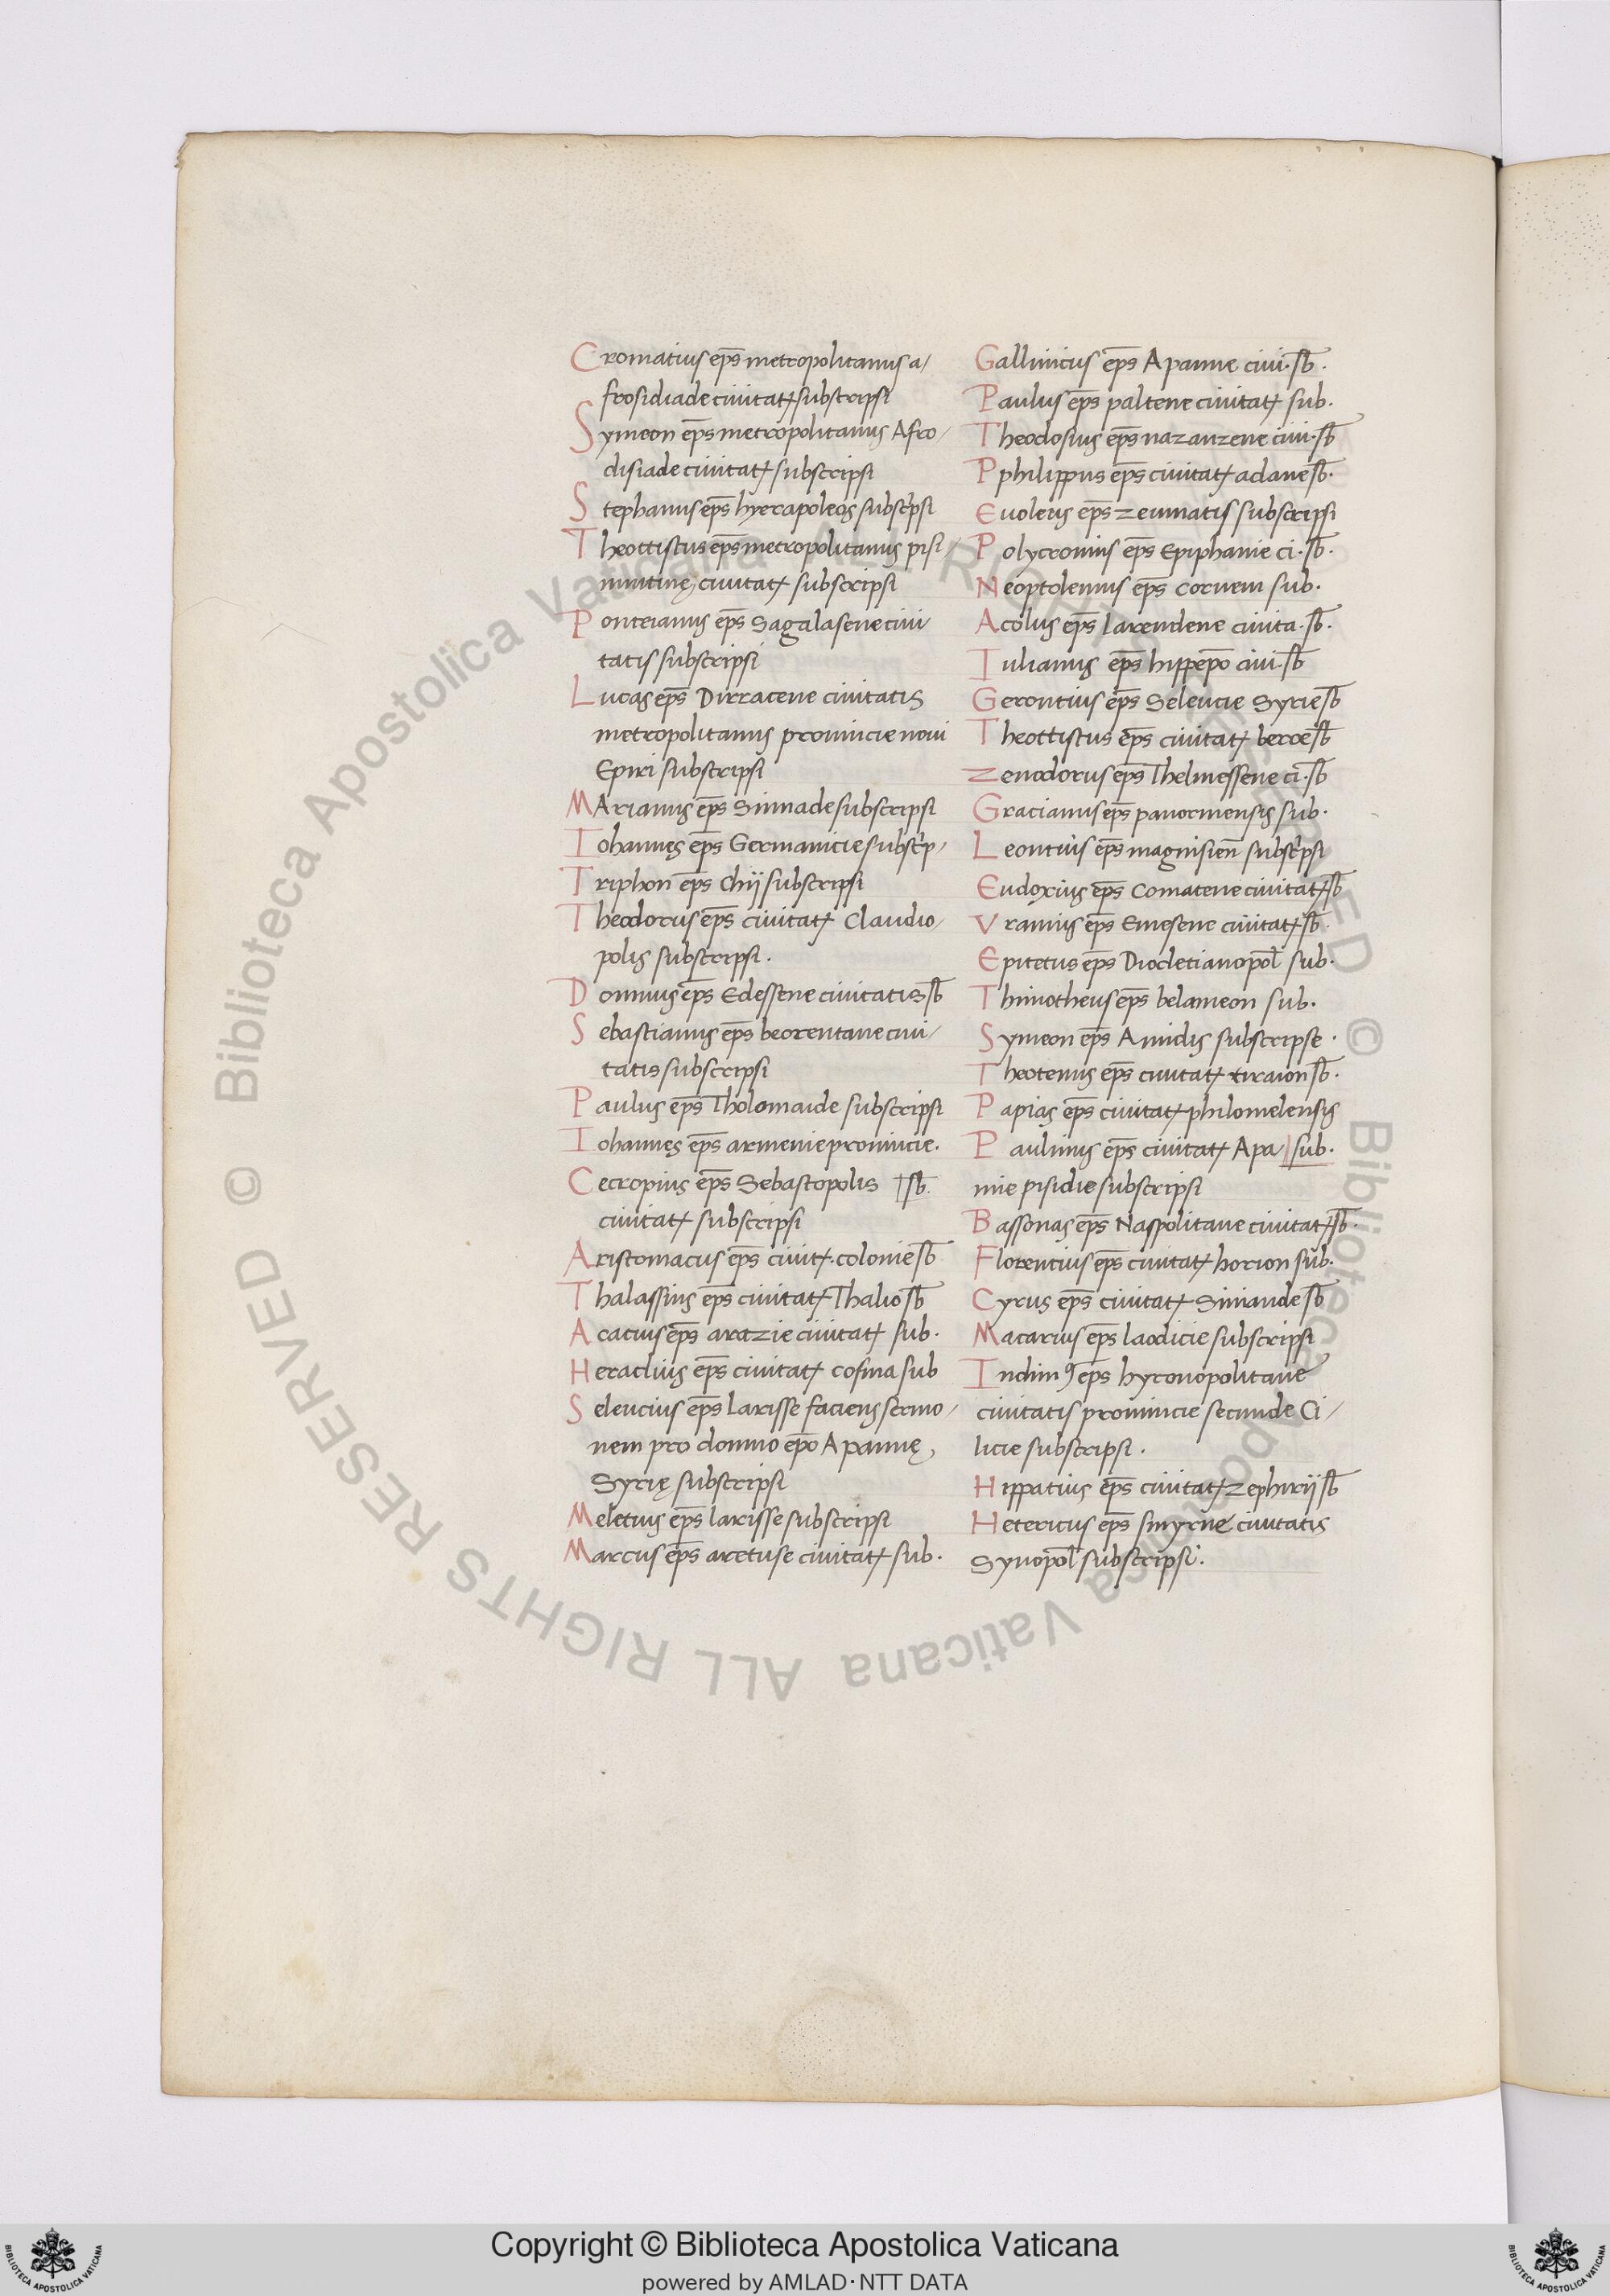 Cromatius ep̄s metropolitanus a/
frosidiade ciuitatꝭ subscripsi
Symeon ep̄s metropolitanus Afro/
disiade ciuitatꝭ subscripsi
Stephanus ep̄s hyerapoleos subscͥpsi
Theottistus ep̄s metropolitanus pisi/
nuntinę ciuitatꝭ subscripsi
Ponteianus ep̄s Sagalasene ciui
tatis subscripsi
Lucas ep̄s Dirracene ciuitatis
metropolitanus prouincie noui
Epiri subscripsi
MArianus ep̄s Sinnade subscripsi
Iohannes ep̄s Germanicie subscͥp/
Triphon ep̄s Chij subscripsi
Theodorus ep̄s ciuitatꝭ Claudio/
polis subscripsi.
Domnus ep̄s Edessene ciuitatis sb̄
Sebastianus ep̄s beorentane ciui/
tatis subscripsi
Paulus ep̄s Tholomaide subscripsi
Iohannes ep̄s armenie prouincie.
Cecropius ep̄s Sebastopolis | sb̄.
ciuitatꝭ subscripsi
Aristomacus ep̄s ciuitꝭ. colonie sb̄
Thalassius ep̄s ciuitatꝭ Thalio sb̄
Acacius ep̄s aratzie ciuitatꝭ sub.
Heraclius ep̄s ciuitatꝭ cosma sub
Seleucius ep̄s larisse faciens sermo/
nem pro domno ep̄o Apannę,
Syrię subscripsi
Meletius ep̄s larisse subscripsi
Marcus ep̄s aretuse ciuitatꝭ sub.
Gallinicus ep̄s Apanne ciui. sb̄.
Paulus ep̄s paltene ciuitatꝭ sub.
Theodosius ep̄s nazanzene ciui. sb̄
Pphilippus ep̄s ciuitatꝭ adane sb̄.
Euoleus ep̄s zeumatis subscripsi
Polycronius ep̄s Epiphanie ci. sb̄.
Neoptolemus ep̄s coruem sub.
Acolus ep̄s larendene ciuita. sb̄.
Iulianus ep̄s hippep̄o ciui. sb̄
Gerontius ep̄s Seleucie Syrie sb̄
Theottistus ep̄s ciuitatꝭ beroe sb̄
Zenodorus ep̄s Thelmessene ci. sb̄
Gracianus ep̄s panormensis sub.
Leontius ep̄s magnisien̄ subscͥpsi
Eudoxius ep̄s Comatene ciuitatꝭ sb̄
Vranius ep̄s Emesene ciuitatꝭ sb̄.
Epitetus ep̄s Diocletianopol̄ sub.
Thimotheus ep̄s belameon sub.
Symeon ep̄s Amidis subscripse.
Theotenus ep̄s ciuitatꝭ tiraion sb̄.
Papias ep̄s ciuitatꝭ philomelensis
Paulinus ep̄s ciuitatꝭ Apa/ | sub.
mie pisidie subscripsi
Bassonas ep̄s Naspolitane ciuitatꝭ sb̄.
Florentius ep̄s ciuitatꝭ horion sub.
Cyrus ep̄s ciuitatꝭ Siniande sb̄
Macarius ep̄s laodicie subscripsi
Indimꝰ ep̄s hyronopolitane
ciuitatis prouincie secunde Ci/
licie subscripsi.
Hippatius ep̄s ciuitatꝭ zephirij sb̄
Hetericus ep̄s smyrne ciuitatis
Synopol̄ subscripsi.
© Biblioteca Apostolica Vaticana ALL RIGHTS RESERVED © Biblioteca Apostolica Vaticana ALL RIGHTS RESERVED
Copyright © Biblioteca Apostolica Vaticana
powered by AMLAD·NTT DATA
BIBLIOTECA APOSTOLICA VATICANA
BIBLIOTECA APOSTOLICA VATICANA